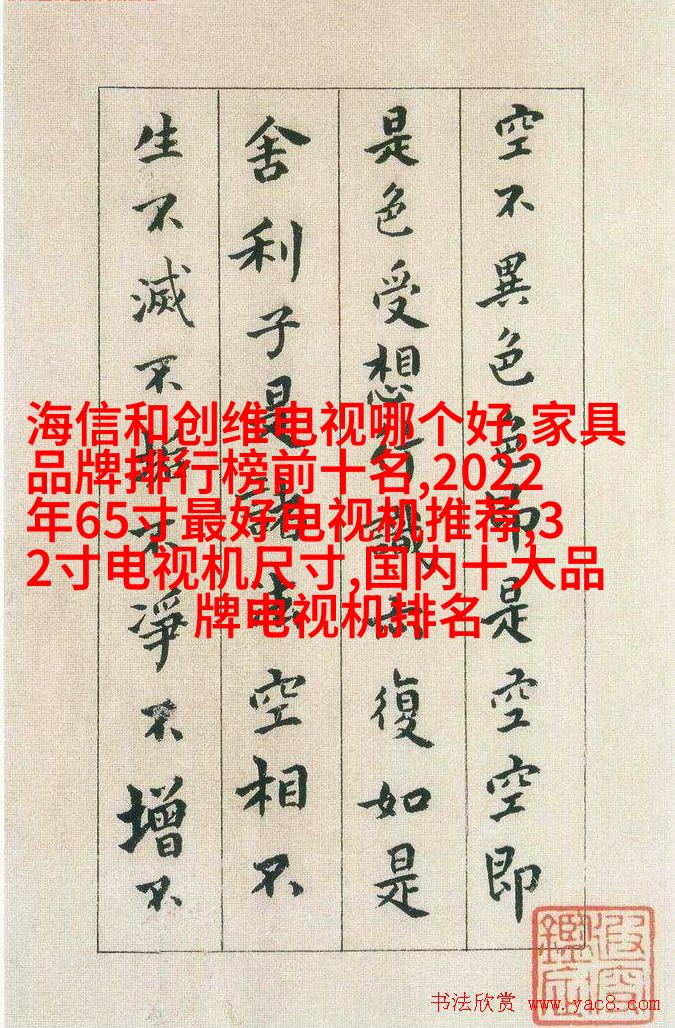 空不異色色即是空空即
是色受想行識亦復如是
舍利子是諸法空相不
生不滅不垢不淨不增不
海信和创维电视哪个好,家具
品牌排行榜前十名,2022
年65寸最好电视机推荐,3
2寸电视机尺寸,国内十大品
牌电视机排名
书法欣赏 www.yac8.com